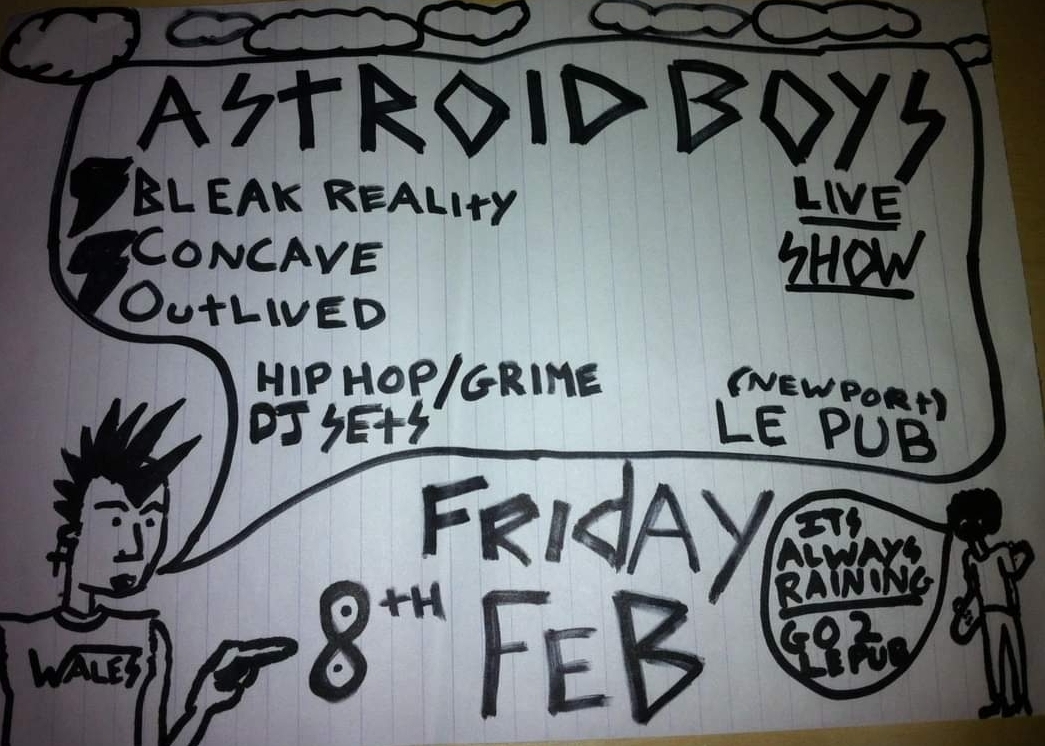 ASTROID BOYS
BLEAK REALITY
CONCAVE
OUTLIVED
LIVE
SHOW
HIP HOP/GRIME
DJ SETS
(NEWPORT)
LE PUB
FRIDAY
8TH FEB
ITS
ALWAYS
RAINING
GO 2
LE PUB
WALES